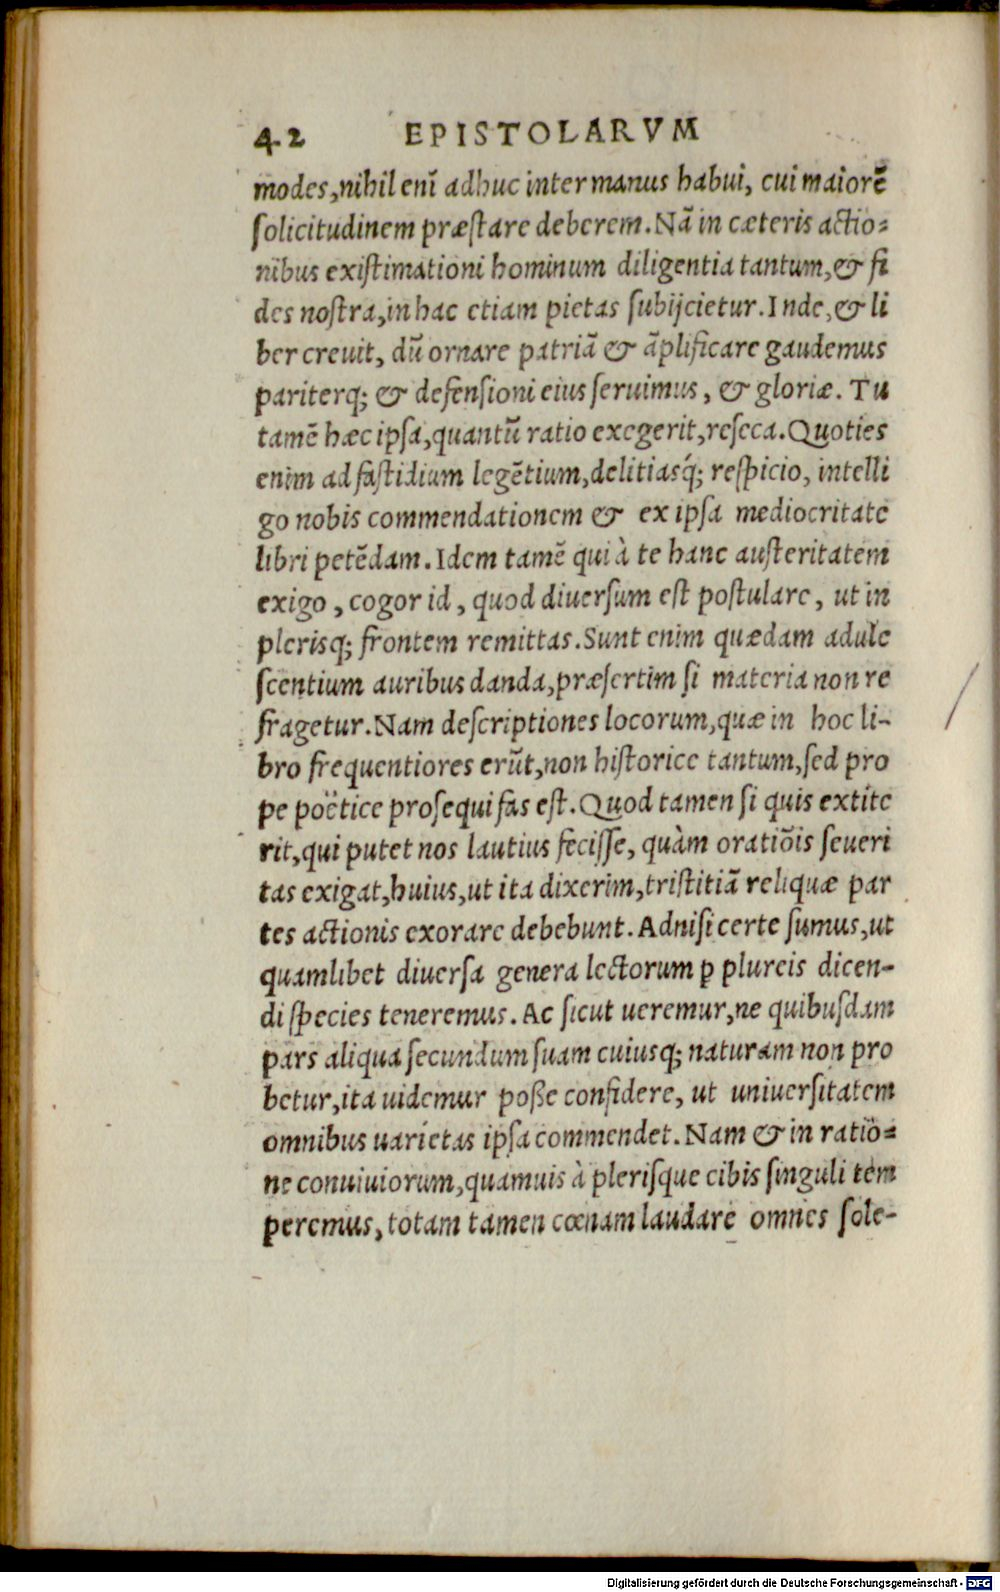 42 EPISTOLARVM
modes,nihil eni᷉ adhuc inter manus habui, cui maiorē
solicitudinem præstare deberem.Nā in cæteris actio-
nibus existimationi hominum diligentia tantum,& fi
des nostra,in hac etiam pietas subijcietur.Inde,& li
ber creuit, dū ornare patriā & āplificare gaudemus
pariterq; & defensioni eius seruimus, & gloriæ. Tu
tamē hæc ipsa,quantū ratio exegerit,reseca.Quoties
enim ad fastidium legētium,delitiasq́; respicio, intelli
go nobis commendationem & ex ipsa mediocritate
libri petēdam.Idem tamē qui à te hanc austeritatem
exigo, cogor id, quod diuersum est postulare, ut in
plerisq; frontem remittas.Sunt enim quædam adule
scentium auribus danda,præsertim si materia non re
fragetur.Nam descriptiones locorum,quæ in hoc li-
bro frequentiores erūt,non historice tantum,sed pro
pe poëtice prosequi fas est.Quod tamen si quis extite
rit,qui putet nos lautius fecisse, quàm oratiōis seueri
tas exigat,huius,ut ita dixerim,tristitiā reliquæ par
tes actionis exorare debebunt.Adnisi certe sumus,ut
quamlibet diuersa genera lectorum ꝑ plureis dicen-
di species teneremus.Ac sicut ueremur,ne quibusdam
pars aliqua secundum suam cuiusq; naturam non pro
betur,ita uidemur poße confidere, ut uniuersitatem
omnibus uarietas ipsa commendet.Nam & in ratio-
ne conuiuiorum,quamuis à plerisque cibis singuli tem
peremus,totam tamen cœnam laudare omnes sole-
Digitalisierung gefördert durch die Deutsche Forschungsgemeinschaft - DFG